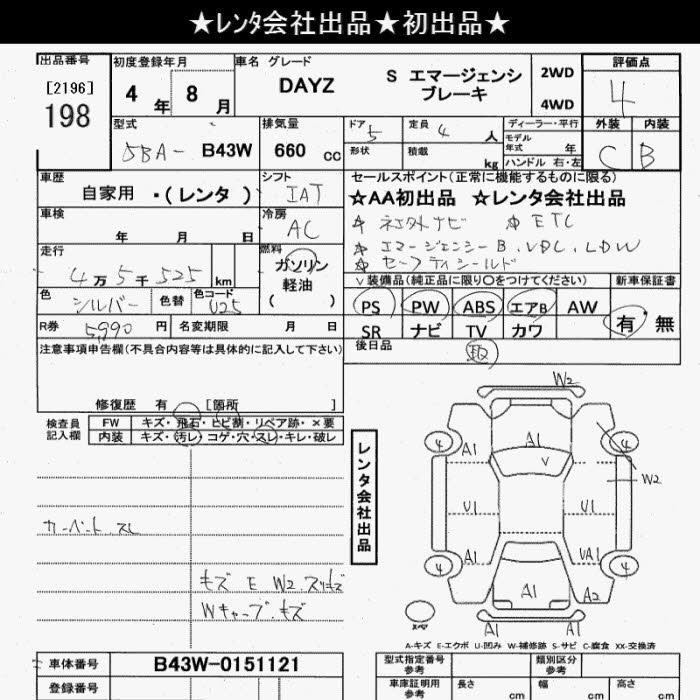 ★レンタ会社出品★初出品★
出品番号 初度登録年月 車名 グレード 評価点
[2196] 198 4年 8月 DAYZ S エマージェンシブレーキ 2WD 4WD 4
型式 排気量 ドア 定員 ディーラー・平行 外装 内装
5BA- B43W 660 cc 5 4 人 モデル年式 年 C B
形状 積載 kg ハンドル 右・左
車歴 シフト セールスポイント(正常に機能するものに限る)
自家用 ・(レンタ) IAT ☆AA初出品 ☆レンタ会社出品
車検 冷房 ナビ ETC
年 月 日 AC エマージェンシーB, VDC, LDW
走行 燃料 セーフティシールド
4万5千525 km ガソリン 軽油 ( ) 装備品(純正品に限り〇をつけてください) 新車保証書
色 シルバー 色替 色コード PS PW ABS エアB AW 有 無
R券 5990 円 名変期限 月 日 SR ナビ TV カワ
注意事項申告欄(不具合内容等は具体的に記入して下さい) 後日品
取
修復歴 有 [箇所 ]
検査員記入欄 FW キズ・飛石・ヒビ割・リペア跡・×要
内装 キズ・汚レ・コゲ・穴・スレ・キレ・破レ
レンタ会社出品
W2
4 A1 A1 4
V W2
U1 U1
4 A1 UA1 4
A1 A2
スペア A1 A1
カーペットスレ
キズ E W2 スリキズ
Wキャップ キズ
A-キズ E-エクボ U-凹み W-補修跡 S-サビ C-腐食 XX-交換済
車体番号 B43W-0151121 型式指定番号 参考 類別区分 参考
登録番号 車庫証明用 参考 長さ cm 幅 cm 高さ cm